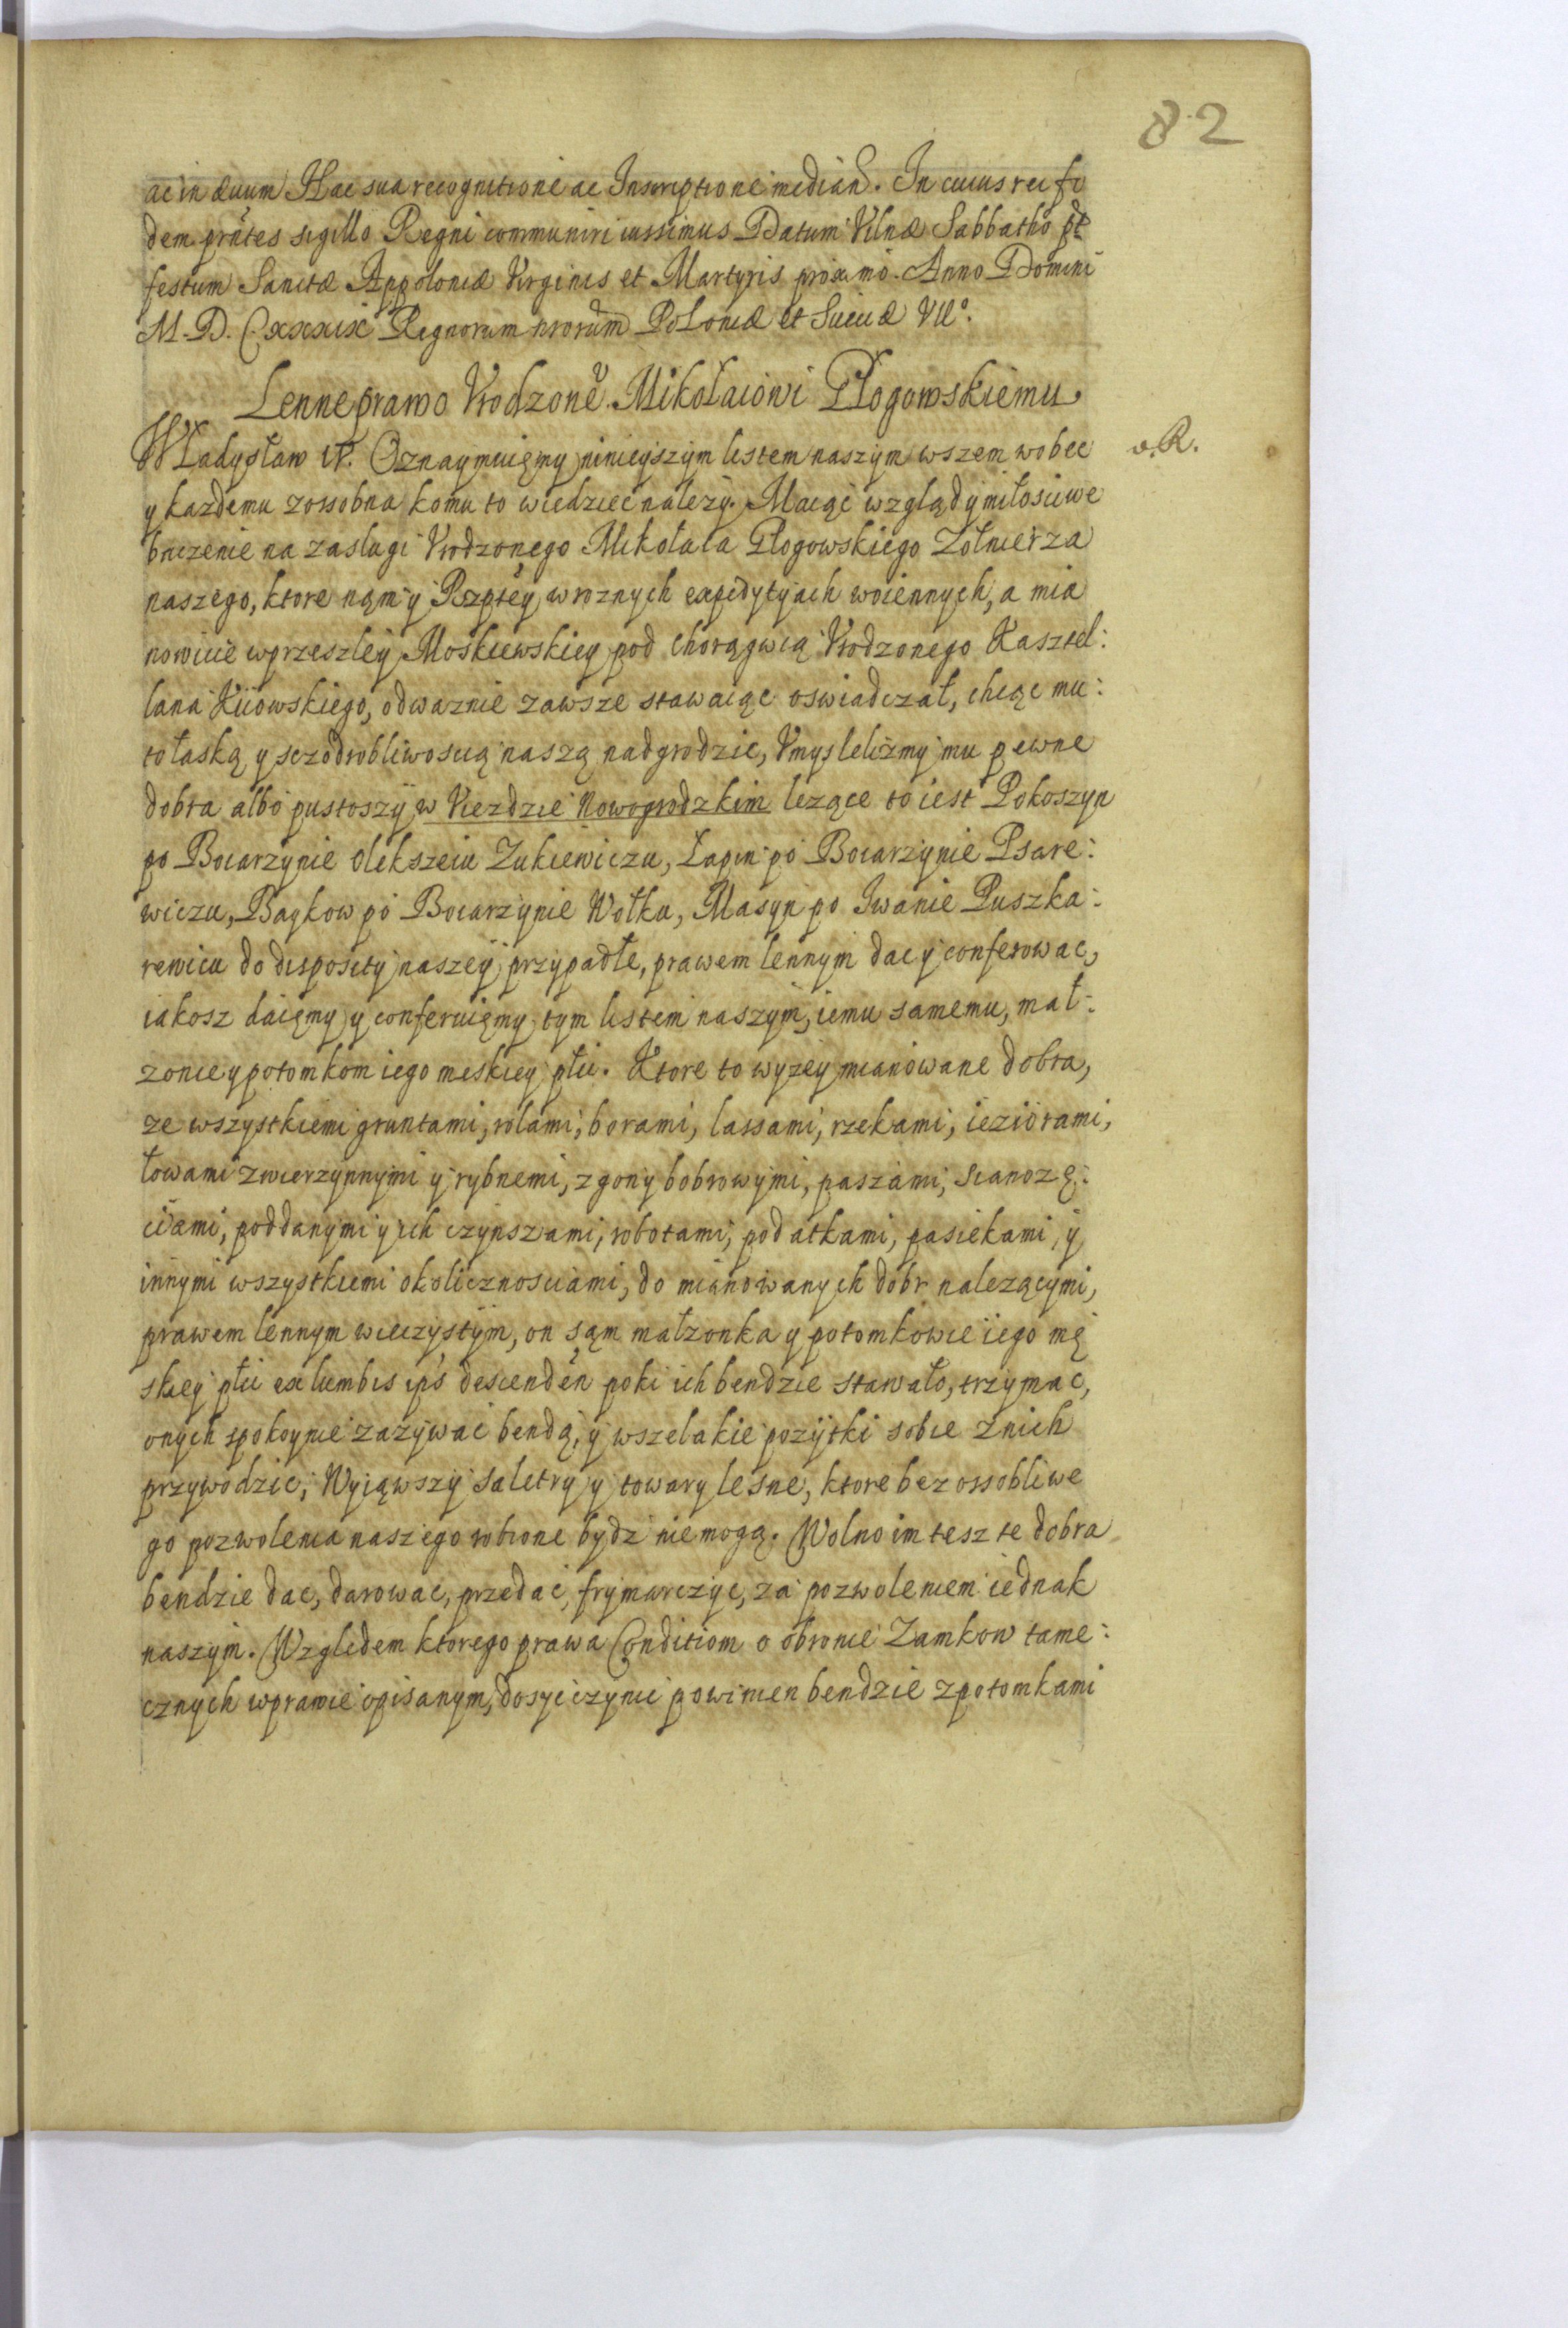 82
ac in æuum Hac sua recognitione ac Inscriptione median̄. In cuius rei fi
dem pn̄tes sigillo Regni communiri iussimus Datum Vilnæ Sabbatho pt
festum Sanctæ Appoloniæ Virginis et Martyris proximo. Anno Domini
M. D. Cxxxix Regnorum nrorum Poloniæ et Sueciæ VII°.
Lenne prawo Vrodzone Mikołaiowi Głogowskiemu.
Władysław IV. Oznaymuięmy ninieyszym listem naszym wszem wobec
v. R.
y kazdemu zossobna komu to wiedziec nalezy. Maiąc wzgląd y miłosciwe
baczenie na zaslugi Vrodzonego Mikołaia Głogowskiego Zołnierza
naszego, ktore nąm y Rzptey w roznych expedytyach woiennych, a mia
nowicie wprzeszley Moskiewskiey pod chorągwią Vrodzonego Kasztel:
lana Kiiowskiego, odwaznie zawsze stawaiąc oswiadczał, chcąc mu:
to łaską y sczodrobliwoscią naszą nadgrodzic, Vmyslelizmy mu pewne
dobra albo pustoszy w Viezdzie Nowogrodzkim lezące to iest Pokoszyn
po Boiarzynie Olekszeiu Zukiewiczu, Łapin po Boiarzynie Psare:
wiczu, Baykow po Boiarzynie Wołku, Masyn po Iwanie Puszka:
rewicu do disposity naszey przypadłe, prawem lennym dac y conferowac,
iakosz daięmy y conferuięmy tym listem naszym, iemu samemu, mał:
zonce y potomkom iego meskiey płci. Ktore to wyzey mianowane dobra,
ze wszystkiemi gruntami, rolami, borami, lassami, rzekami, ieziorami,
łowami zwierzynnymi y rybnemi, z gony bobrowymi, paszami, sianozę:
ciami, poddanymi y ich czynszami, robotami, podatkami, pasiekami, y
innymi wszystkiemi okolicznosciami, do mianowanych dobr nalezącymi,
prawem lennym wieczystym, on sąm małzonka y potomkowie iego mę
skiey płci ex lumbis ips descenden̄ poki ich bendzie stawało, trzymac,
onych spokoynie zazywac bendą, y wszelakie pozytki sobie znich
przywodzic, Wyiąwszy saletry y towary lesne, ktore bez ossobliwe
go pozwolenia naszego robione bydz niemogą. Wolno im tesz te dobra
bendzie dac, darowac, przedac, frymarczyc, za pozwoleniem iednak
naszym. Wzgledem ktorego prawa Conditiom o obronie Zamkow tame:
cznych wprawie opisanym, dosyc czynic powinien bendzie zpotomkami